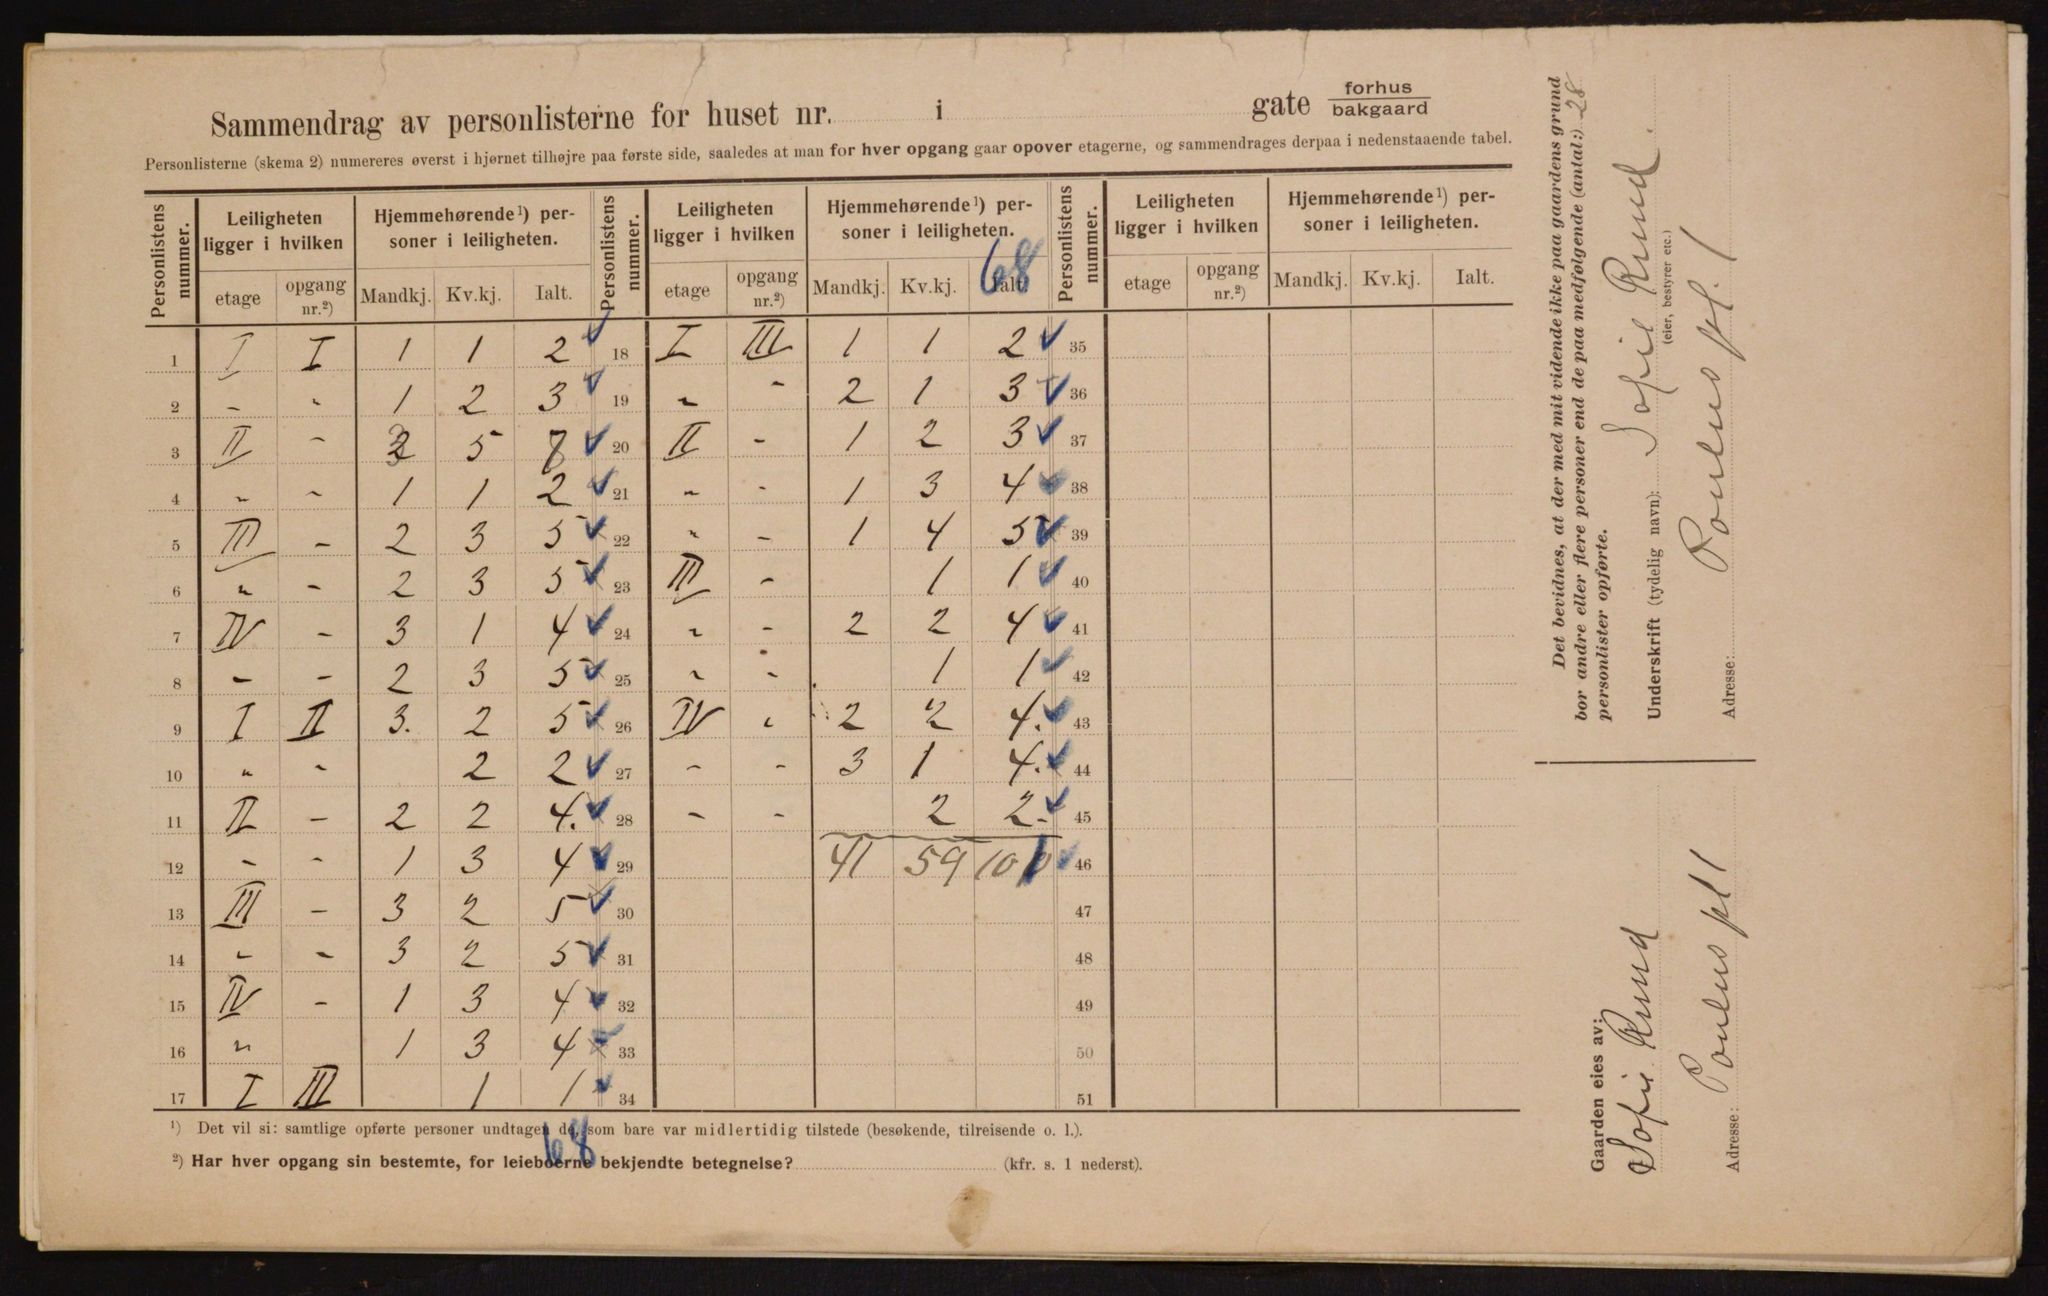 Sammendrag av personlisterne for huset nr. i gate forhus bakgaard
Personlisterne (skema 2) numereres øverst i hjørnet tilhøjre paa første side, saaledes at man for hver opgang gaar opover etagerne, og sammendrages derpaa i nedenstaaende tabel.
Personlistens nummer. Leiligheten ligger i hvilken Hjemmehørende¹) personer i leiligheten. Personlistens nummer. Leiligheten ligger i hvilken Hjemmehørende¹) personer i leiligheten. Personlistens nummer. Leiligheten ligger i hvilken Hjemmehørende¹) personer i leiligheten.
etage opgang nr.²) Mandkj. Kv.kj. Ialt. etage opgang nr.²) Mandkj. Kv.kj. Ialt. etage opgang nr.²) Mandkj. Kv.kj. Ialt.
68
1 I I 1 1 2 ✓ 18 I III 1 1 2 ✓ 35
2 - " 1 2 3 ✓ 19 " - 2 1 3 ✓ 36
3 II - 3 5 8 ✓ 20 II - 1 2 3 ✓ 37
4 " - 1 1 2 ✓ 21 " - 1 3 4 ✓ 38
5 III - 2 3 5 ✓ 22 " - 1 4 5 ✓ 39
6 " - 2 3 5 ✓ 23 III - 1 1 ✓ 40
7 IV - 3 1 4 ✓ 24 " - 2 2 4 ✓ 41
8 - - 2 3 5 ✓ 25 " - 1 1 ✓ 42
9 I II 3. 2 5 ✓ 26 IV " 2 2 4. ✓ 43
10 " - 2 2 ✓ 27 - - 3 1 4. ✓ 44
11 II - 2 2 4. ✓ 28 - - 2 2. ✓ 45
12 - - 1 3 4 ✓ 29 41 59 100 ✓ 46
13 III - 3 2 5 ✓ 30 47
14 " - 3 2 5 ✓ 31 48
15 IV - 1 3 4 ✓ 32 49
16 " 1 3 4 ✓ 33 50
17 I III 1 1 ✓ 34 51
¹) Det vil si: samtlige opførte personer undtagen de, som bare var midlertidig tilstede (besøkende, tilreisende o. l.).
68
²) Har hver opgang sin bestemte, for leieboerne bekjendte betegnelse? (kfr. s. 1 nederst).
Det bevidnes, at der med mit vidende ikke paa gaardens grund
bor andre eller flere personer end de paa medfølgende (antal:) 28
personlister opførte.
Underskrift (tydelig navn): Sofie Ruud.
(eier, bestyrer etc.)
Adresse: Poulus pl. 1
Gaarden eies av:
Sofie Ruud
Adresse: Poulus pl 1